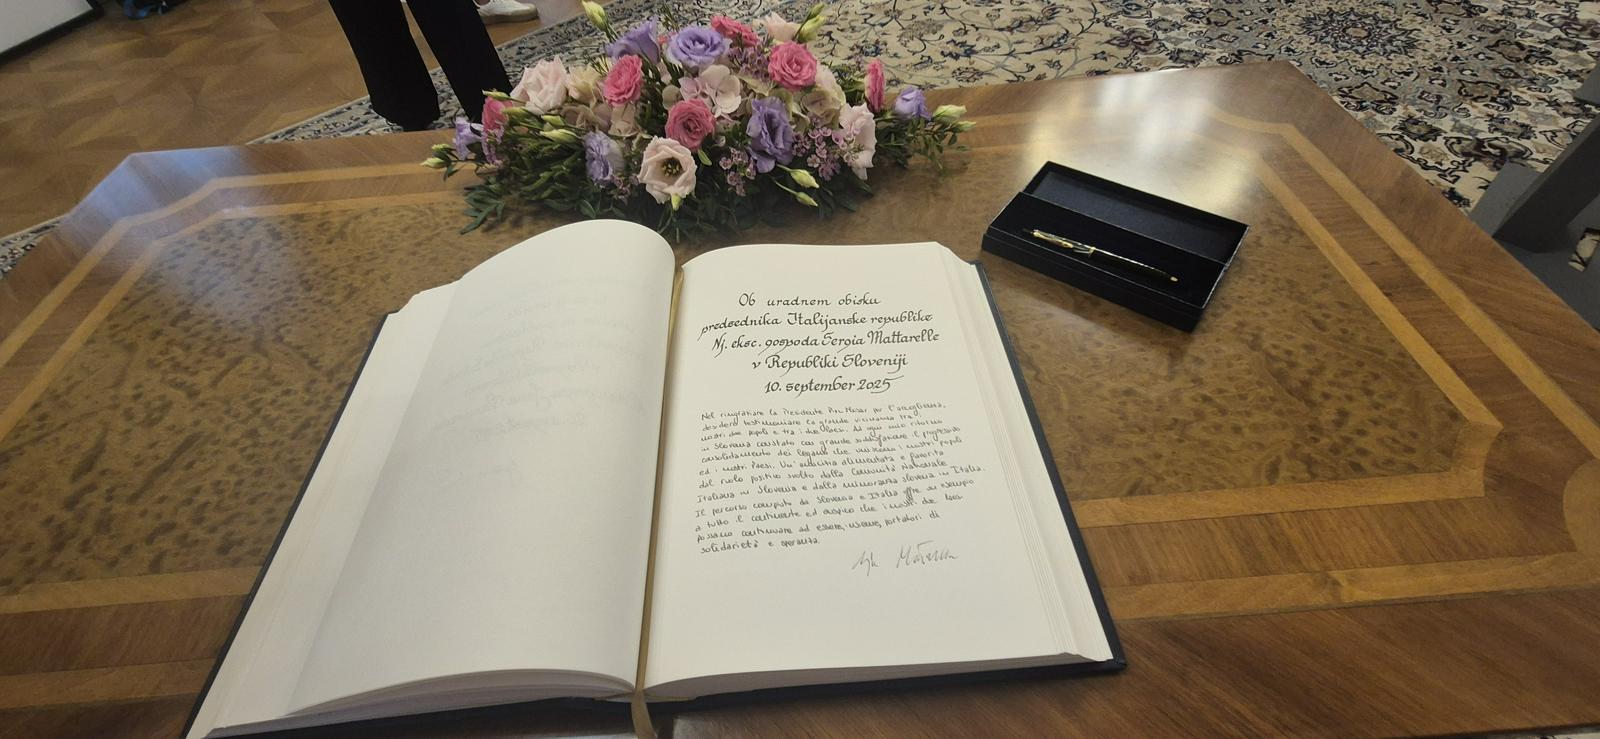 Ob uradnem obisku
predsednika Italijanske republike
Nj. eksc. gospoda Sergia Mattarelle
v Republiki Sloveniji
10. september 2025
Nel ringraziare la Presidente Pirc Musar per l'accoglienza,
desidero testimoniare la grande vicinanza tra i
nostri due popoli e tra i due Paesi. Ad ogni mio ritorno
in Slovenia constato con grande soddisfazione il progressivo
consolidamento dei legami che uniscono i nostri popoli
ed i nostri Paesi. Un'amicizia alimentata e favorita
dal ruolo positivo svolto dalla Comunità Nazionale
Italiana in Slovenia e dalla minoranza slovena in Italia.
Il percorso compiuto da Slovenia e Italia offre un esempio
a tutto il continente ed auspico che i nostri due Paesi
possano continuare ad essere, insieme, portatori di
solidarietà e speranza.